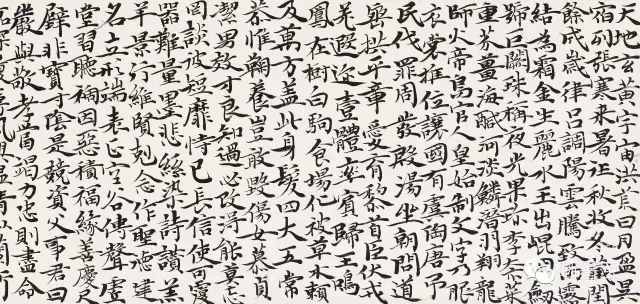 天地玄黃宇宙洪荒日月盈昃
宿列張寒來暑往秋收冬藏閏
餘成歲律呂調陽雲騰致雨
結為霜金生麗水玉出崐岡劍
號巨闕珠稱夜光果珍李柰菜
重芥薑海鹹河淡鱗潛羽翔龍
師火帝鳥官人皇始制文字乃服
衣裳推位讓國有虞陶唐弔
民伐罪周發殷湯坐朝問道
垂拱平章愛育黎首臣伏戎
羌遐迩壹體率賓歸王鳴
鳳在樹白駒食場化被草木賴
及萬方蓋此身髮四大五常
恭惟鞠養豈敢毀傷女慕貞
潔男效才良知過必改得能莫忘
罔談彼短靡恃己長信使可覆
器難量墨悲絲染詩讚羔
羊景行維賢剋念作聖德建
名立形端表正空谷傳聲虛
堂習聽禍因惡積福緣善慶尺
璧非寶寸陰是競資父事君曰
嚴與敬孝當竭力忠則盡命